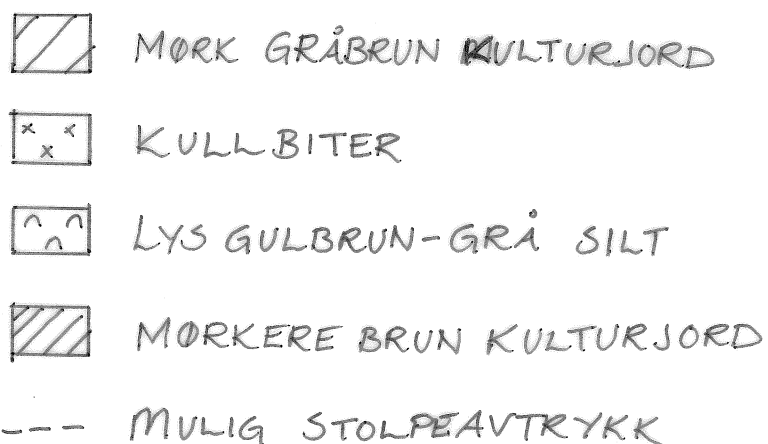 MØRK GRÅBRUN KULTURJORD
KULLBITER
LYS GULBRUN-GRÅ SILT
MØRKERE BRUN KULTURJORD
MULIG STOLPEAVTRYKK